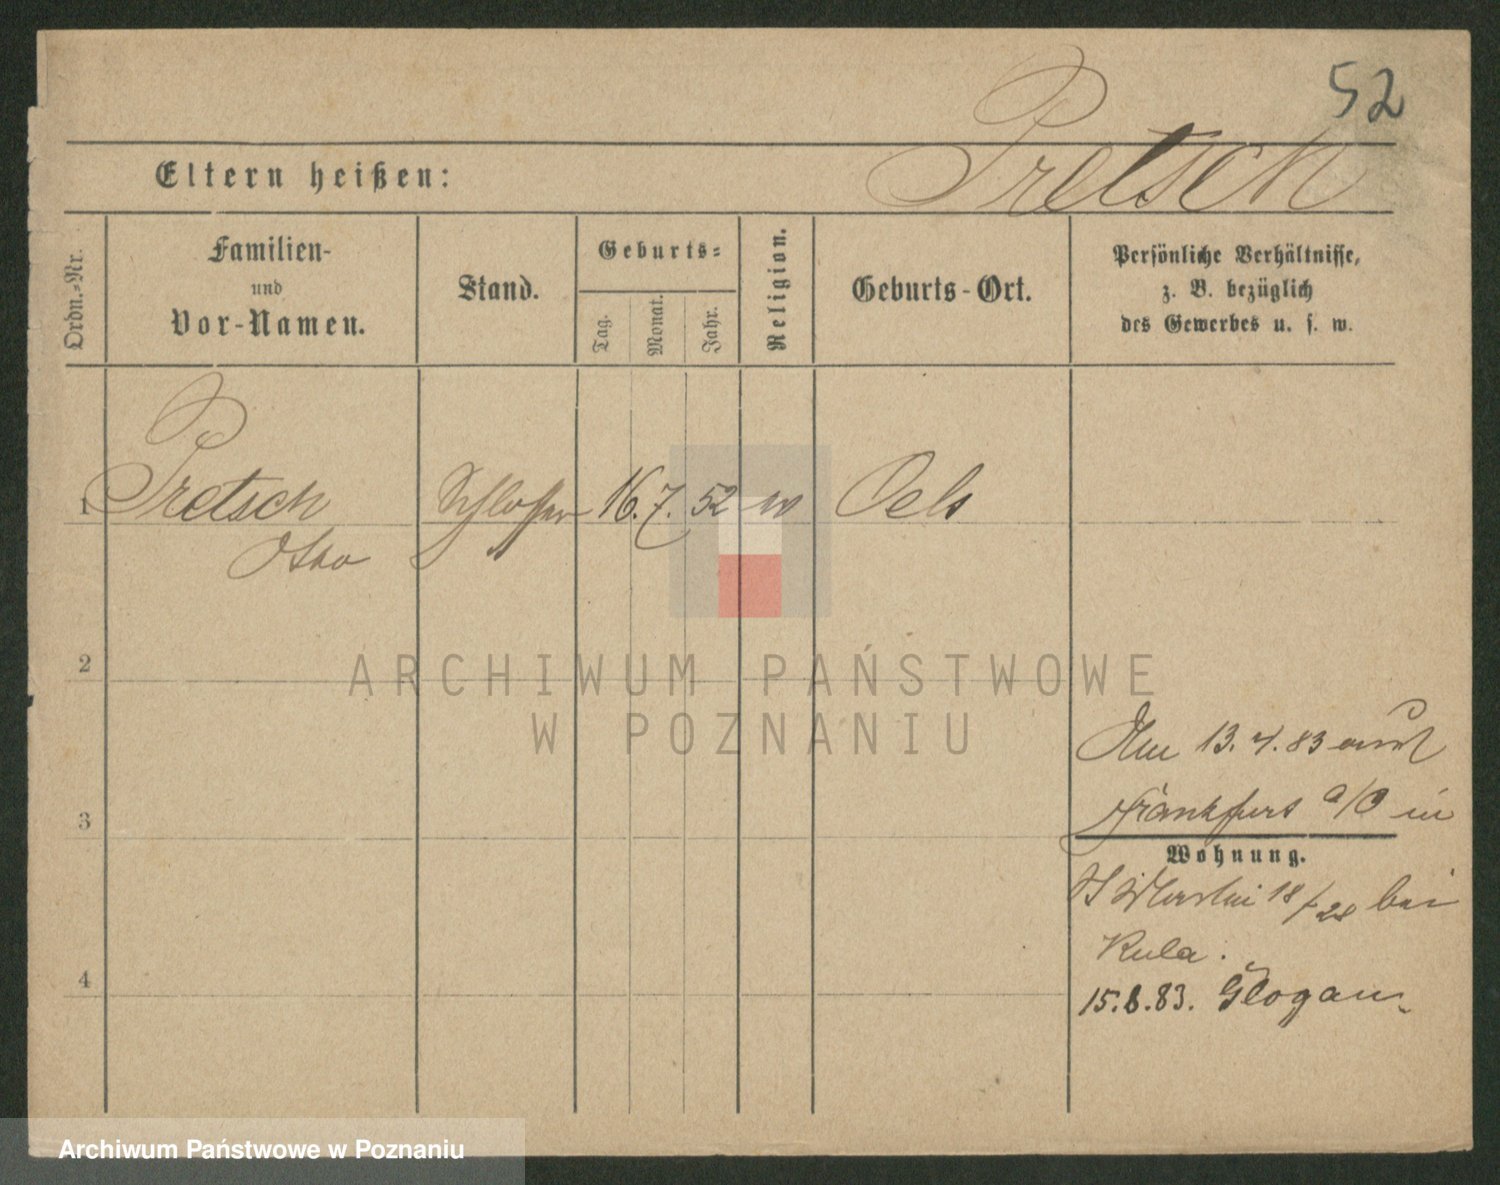 52
Pretsch
Eltern heißen:
Ordn.-Nr.
Familien-
und
Vor-Namen.
Stand.
Geburts-
Tag.
Monat.
Jahr.
Religion.
Geburts-Ort.
Persönliche Verhältnisse,
z. B. bezüglich
des Gewerbes u. s. w.
1 Pretsch Schlosser 16. 7. 52 Oels
Otto
2
ARCHIWUM PAŃSTWOWE
W POZNANIU
13. 4. 83
3
Frankfurt a/O in
Wohnung.
St Martin 18/ 28 bei
Kula.
4
15.8.83. Glogau.
Archiwum Państwowe w Poznaniu